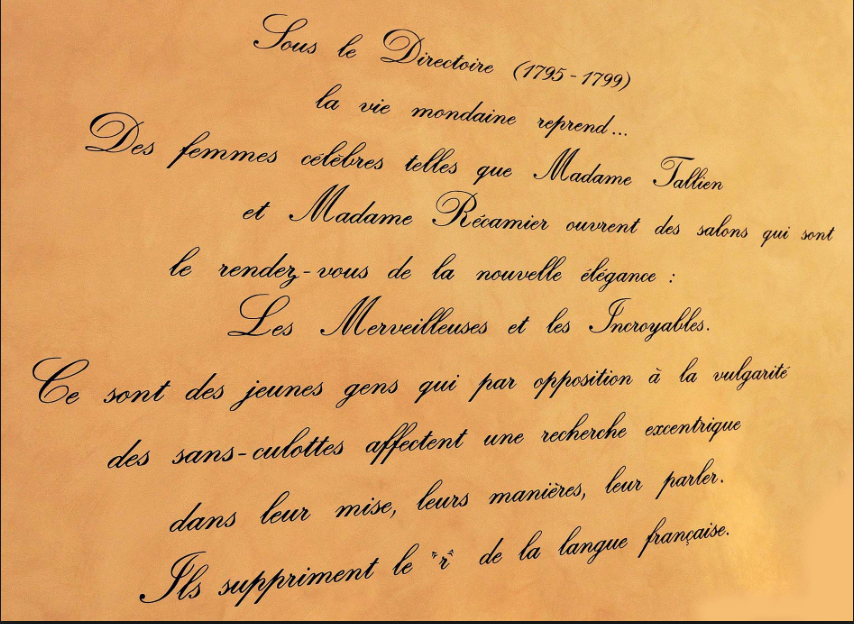 Sous le Directoire (1795 - 1799)
la vie mondaine reprend...
Des femmes célèbres telles que Madame Tallien
et Madame Récamier ouvrent des salons qui sont
le rendez-vous de la nouvelle élégance :
Les Merveilleuses et les Incroyables.
Ce sont des jeunes gens qui par opposition à la vulgarité
des sans-culottes affectent une recherche excentrique
dans leur mise, leurs manières, leur parler.
Ils suppriment le "r" de la langue française.